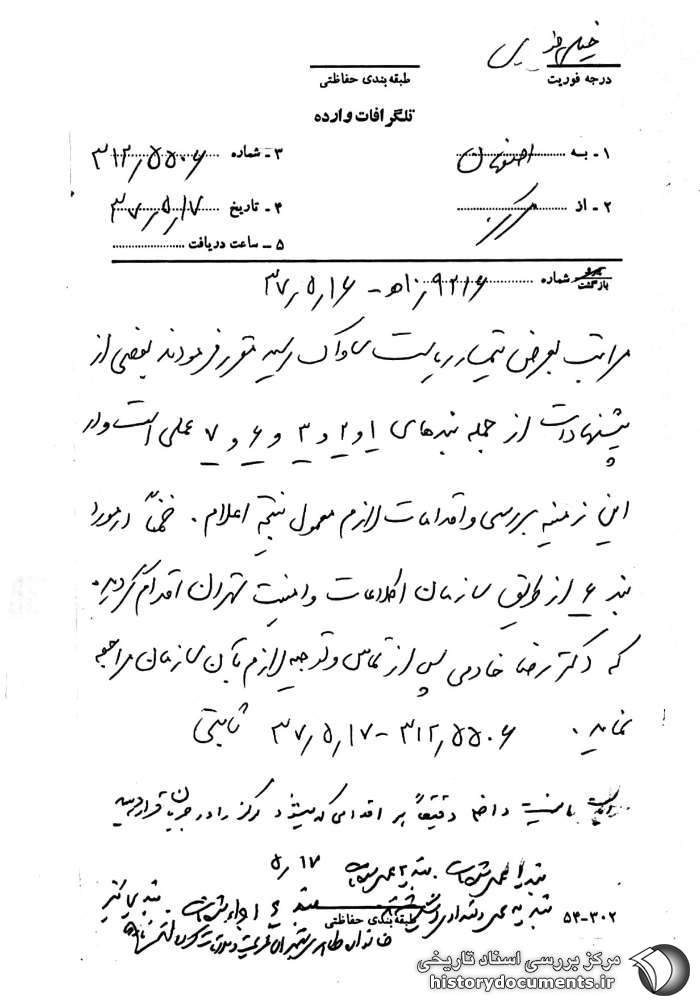 خیلی فوری
درجه فوریت
طبقه‌بندی حفاظتی
تلگرافات وارده
۱ـ به اصفهان
۳ـ شماره ۳۱۲٫۵۵۰۶
۲ـ از مرکز
۴ـ تاریخ ۳۷٫۵٫۱۷
۵ـ ساعت دریافت
بازگشت شماره ۹۲۱۶٫۱۰ﻫ - ۳۷٫۵٫۱۶
مراتب بعرض تیمسار ریاست ساواک رسید مقرر فرمودند بعضی از
پیشنهادات از جمله بندهای ۱ و ۲ و ۳ و ۶ و ۷ عملی است و در
این زمینه بررسی و اقدامات لازم معمول نتیجه اعلام . ضمناً در مورد
بند ۶ از طریق سازمان اطلاعات و امنیت تهران اقدام گردید.
که دکتر رضا خادمی پس از تماس و توجیه لازم بآن سازمان مراجعه
نماید . ۳۱۲٫۵۵۰۶ - ۳۷٫۵٫۱۷ ثابتی
امنیت داخلی دقیقاً هر اقدامی که میشود مرکز را در جریان قرار دهید
۵٫۱۷
بند
طبقه‌بندی حفاظتی
۵۴-۳۰۲
مرکز بررسی اسناد تاریخی
historydocuments.ir